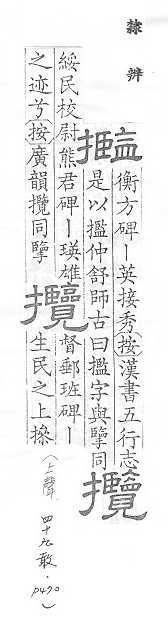 隸辨
㩜
衡方碑｜英接秀按漢書五行志
是以㩜仲舒師古曰㩜字與擥同
攬
綏民校尉熊君碑｜瑛雄
之迹兮按廣韻攬同擥
攬
督郵班碑｜
生民之上操
(上聲 四十九敢．p490)